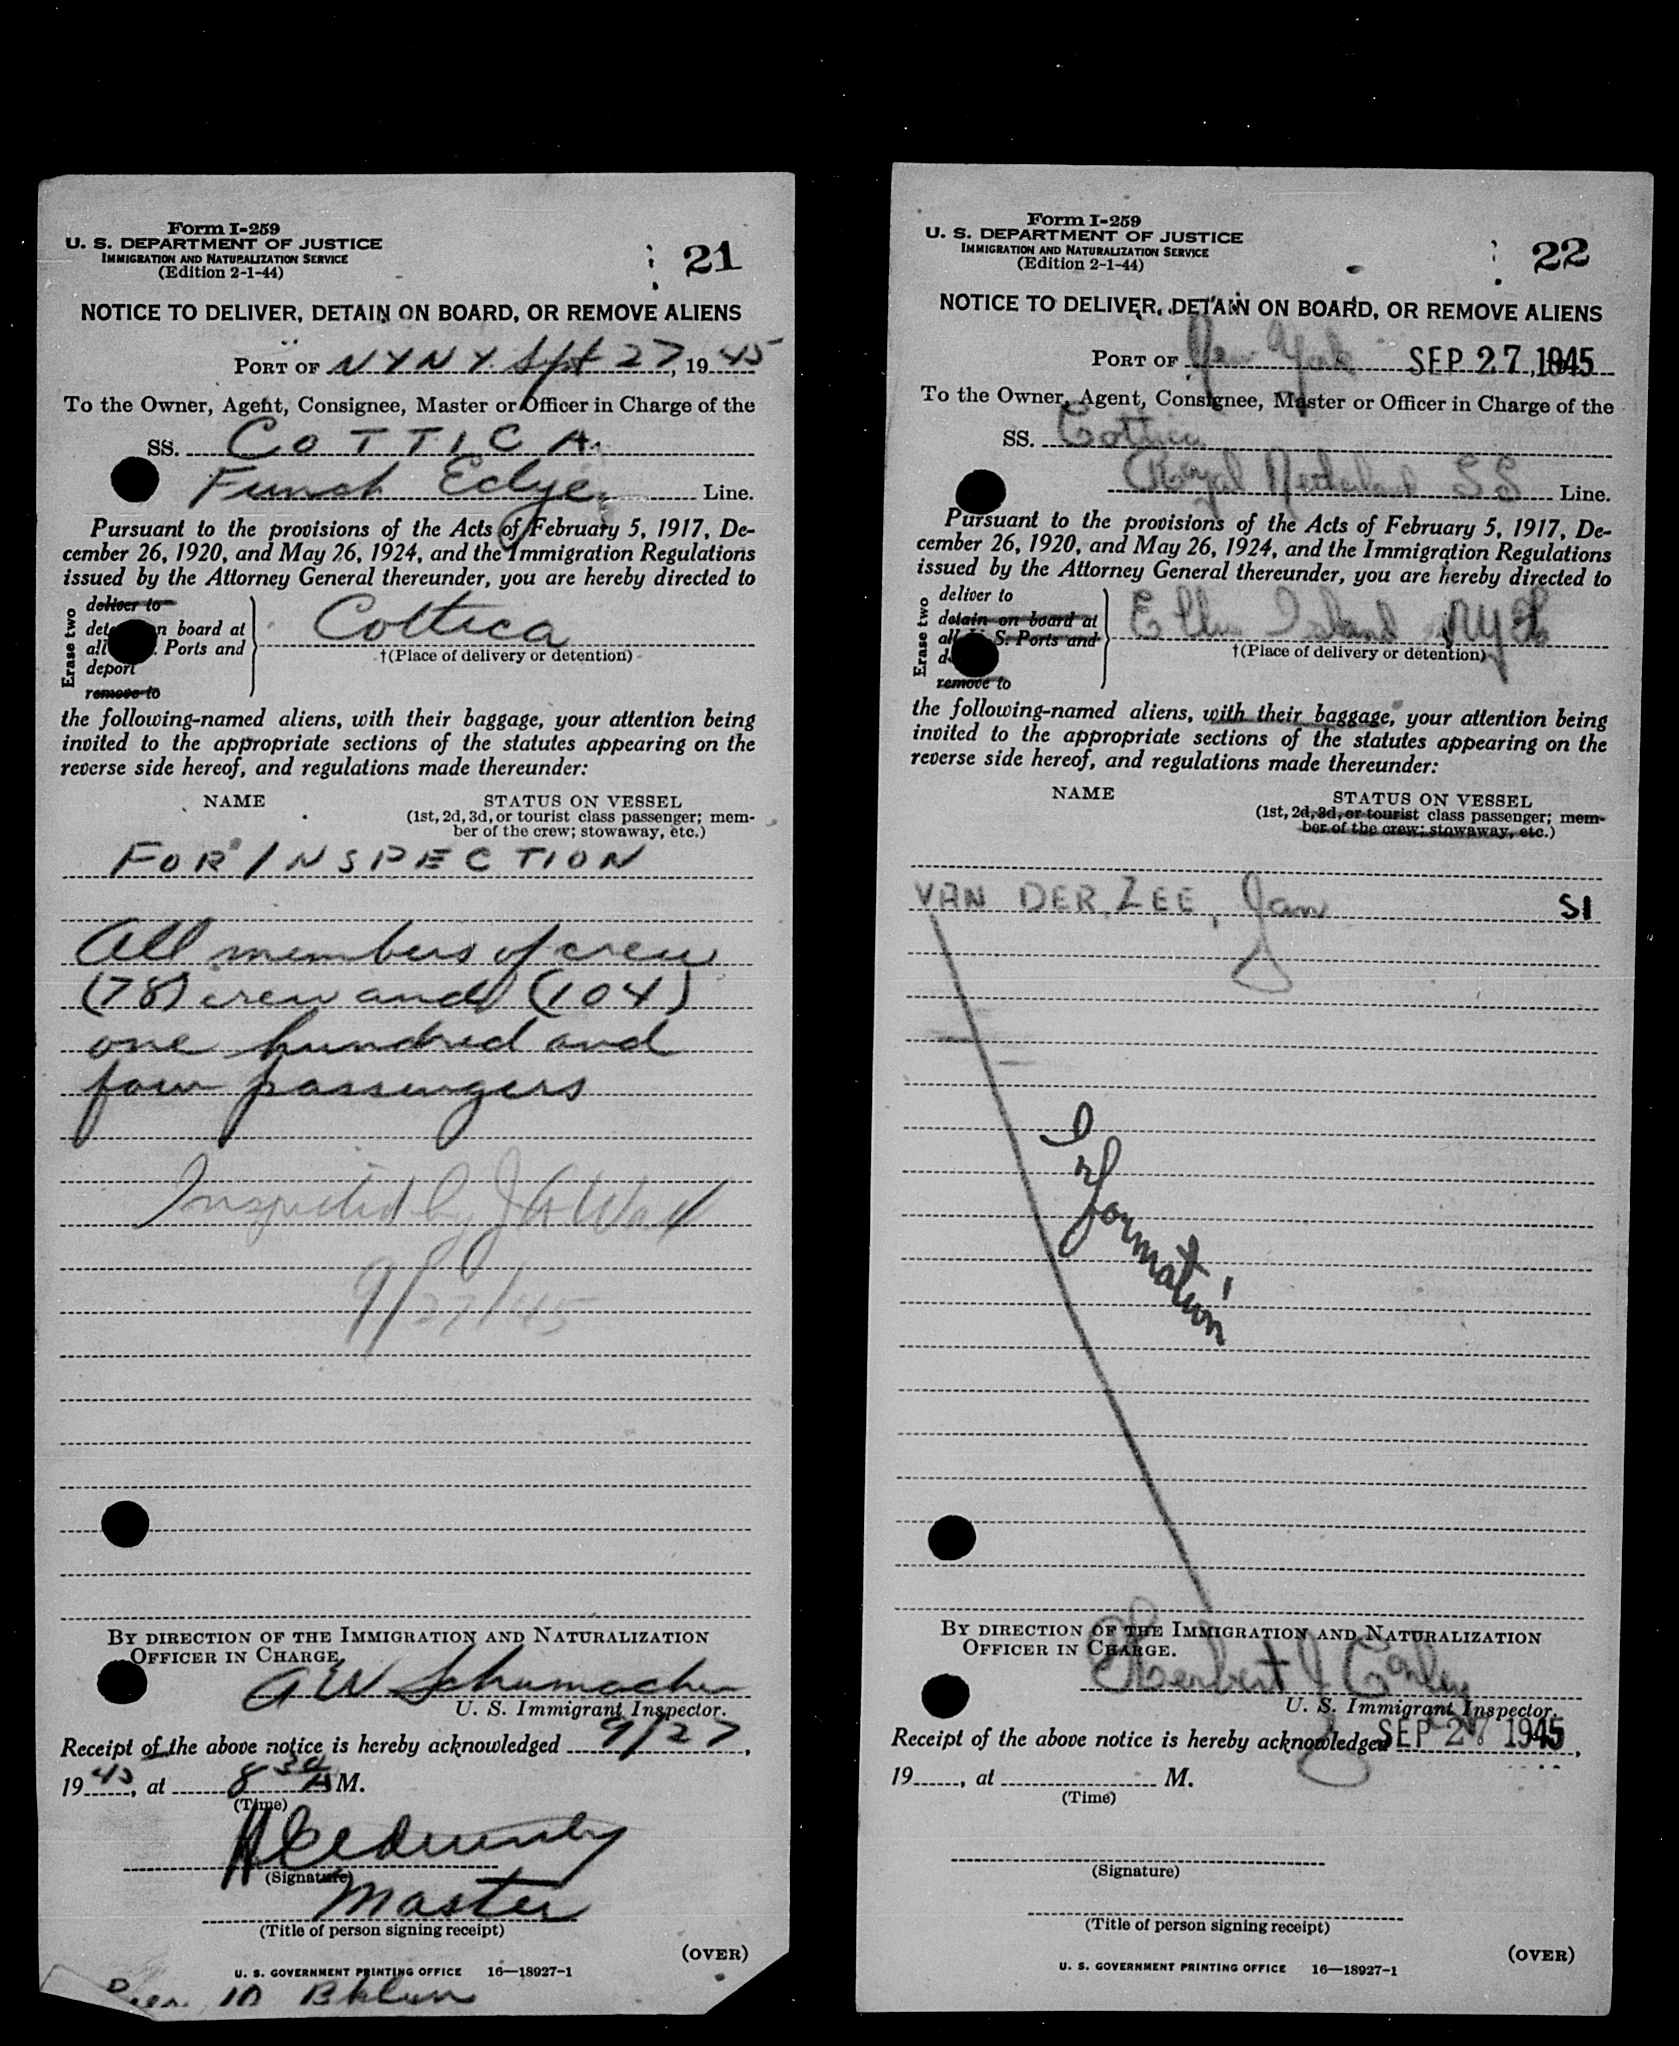 Form I-259
U. S. DEPARTMENT OF JUSTICE
IMMIGRATION AND NATURALIZATION SERVICE
(Edition 2-1-44)
21
NOTICE TO DELIVER, DETAIN ON BOARD, OR REMOVE ALIENS
PORT OF NYNY. Spt 27, 1945
To the Owner, Agent, Consignee, Master or Officer in Charge of the
SS. COTTICA
Funch Edye Line.
Pursuant to the provisions of the Acts of February 5, 1917, De-
cember 26, 1920, and May 26, 1924, and the Immigration Regulations
issued by the Attorney General thereunder, you are hereby directed to
Erase two
deliver to
n board at
all . Ports and
deport
remove to
Cottica
†(Place of delivery or detention)
the following-named aliens, with their baggage, your attention being
invited to the appropriate sections of the statutes appearing on the
reverse side hereof, and regulations made thereunder:
NAME STATUS ON VESSEL
(1st, 2d, 3d, or tourist class passenger; mem-
ber of the crew; stowaway, etc.)
FOR INSPECTION
All members of crew
(78) crew and (104)
one hundred and
four passengers
Inspected by J A
9/27/45
BY DIRECTION OF THE IMMIGRATION AND NATURALIZATION
OFFICER IN CHARGE.
A W Schumacher
U. S. Immigrant Inspector.
Receipt of the above notice is hereby acknowledged 9/27,
1945, at 8 30 A M.
(Time)
(Signature)
Master
(Title of person signing receipt)
(OVER)
U. S. GOVERNMENT PRINTING OFFICE 16—18927-1
10 Bklyn
Form I-259
U. S. DEPARTMENT OF JUSTICE
IMMIGRATION AND NATURALIZATION SERVICE
(Edition 2-1-44)
22
NOTICE TO DELIVER, DETAIN ON BOARD, OR REMOVE ALIENS
PORT OF New York SEP 27 1945
To the Owner, Agent, Consignee, Master or Officer in Charge of the
SS. Cottica
Royal Nederland SS Line.
Pursuant to the provisions of the Acts of February 5, 1917, De-
cember 26, 1920, and May 26, 1924, and the Immigration Regulations
issued by the Attorney General thereunder, you are hereby directed to
Erase two
deliver to
detain on board at
all S. Ports and
remove to
Ellis Island NYH
†(Place of delivery or detention)
the following-named aliens, with their baggage, your attention being
invited to the appropriate sections of the statutes appearing on the
reverse side hereof, and regulations made thereunder:
NAME STATUS ON VESSEL
(1st, 2d, 3d, or tourist class passenger; mem-
ber of the crew; stowaway, etc.)
VAN DER ZEE, Jan SI
Information
BY DIRECTION OF THE IMMIGRATION AND NATURALIZATION
OFFICER IN CHARGE.
Herbert J Conley
U. S. Immigrant Inspector.
Receipt of the above notice is hereby acknowledged SEP 27 1945,
19 , at M.
(Time)
(Signature)
(Title of person signing receipt)
(OVER)
U. S. GOVERNMENT PRINTING OFFICE 16—18927-1